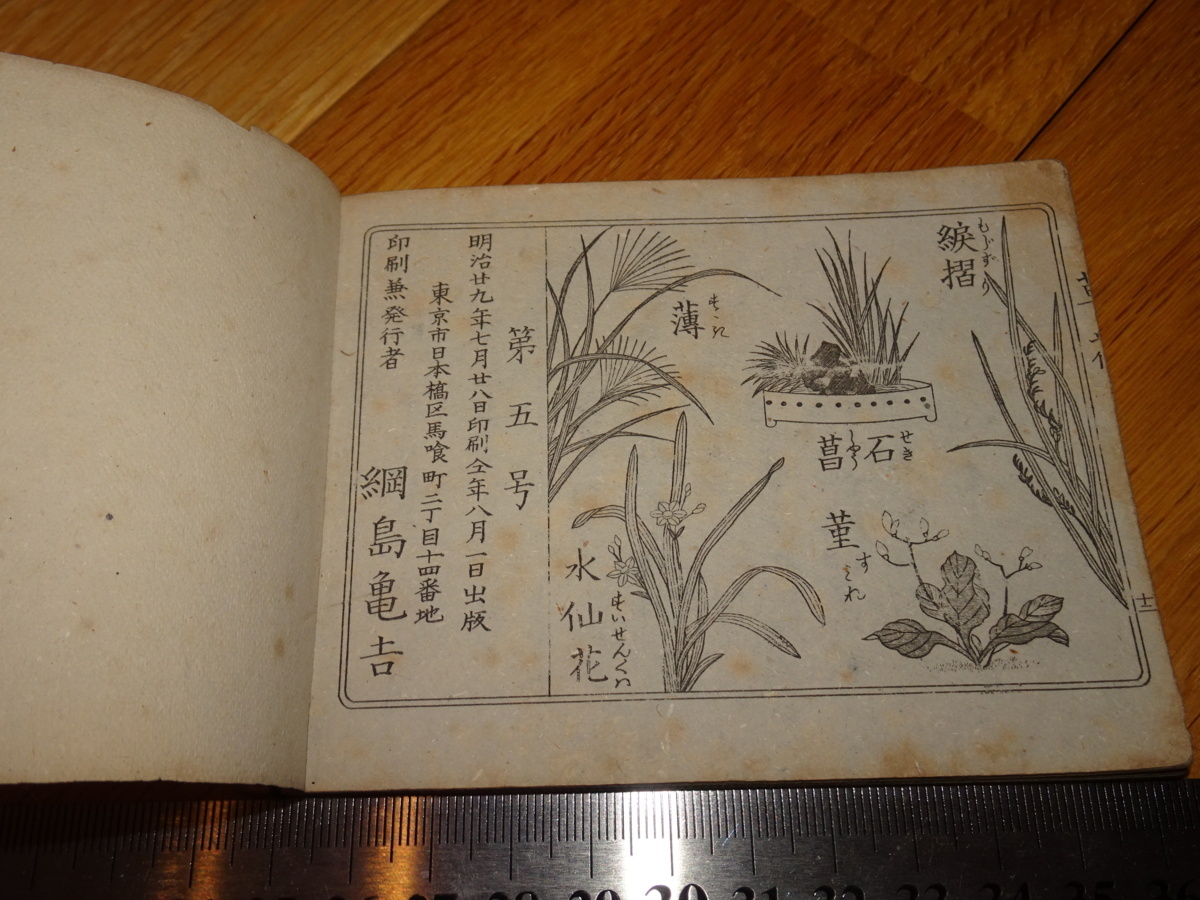 綟摺
もぢずり
石菖
せきしやう
菫
すみれ
薄
すゝき
水仙花
すいせんくハ
第五号
明治廿九年七月廿八日印刷仝年八月一日出版
東京市日本橋区馬喰町二丁目十四番地
印刷兼発行者 綱島亀吉
十二
29
30
31
32
33
34
35